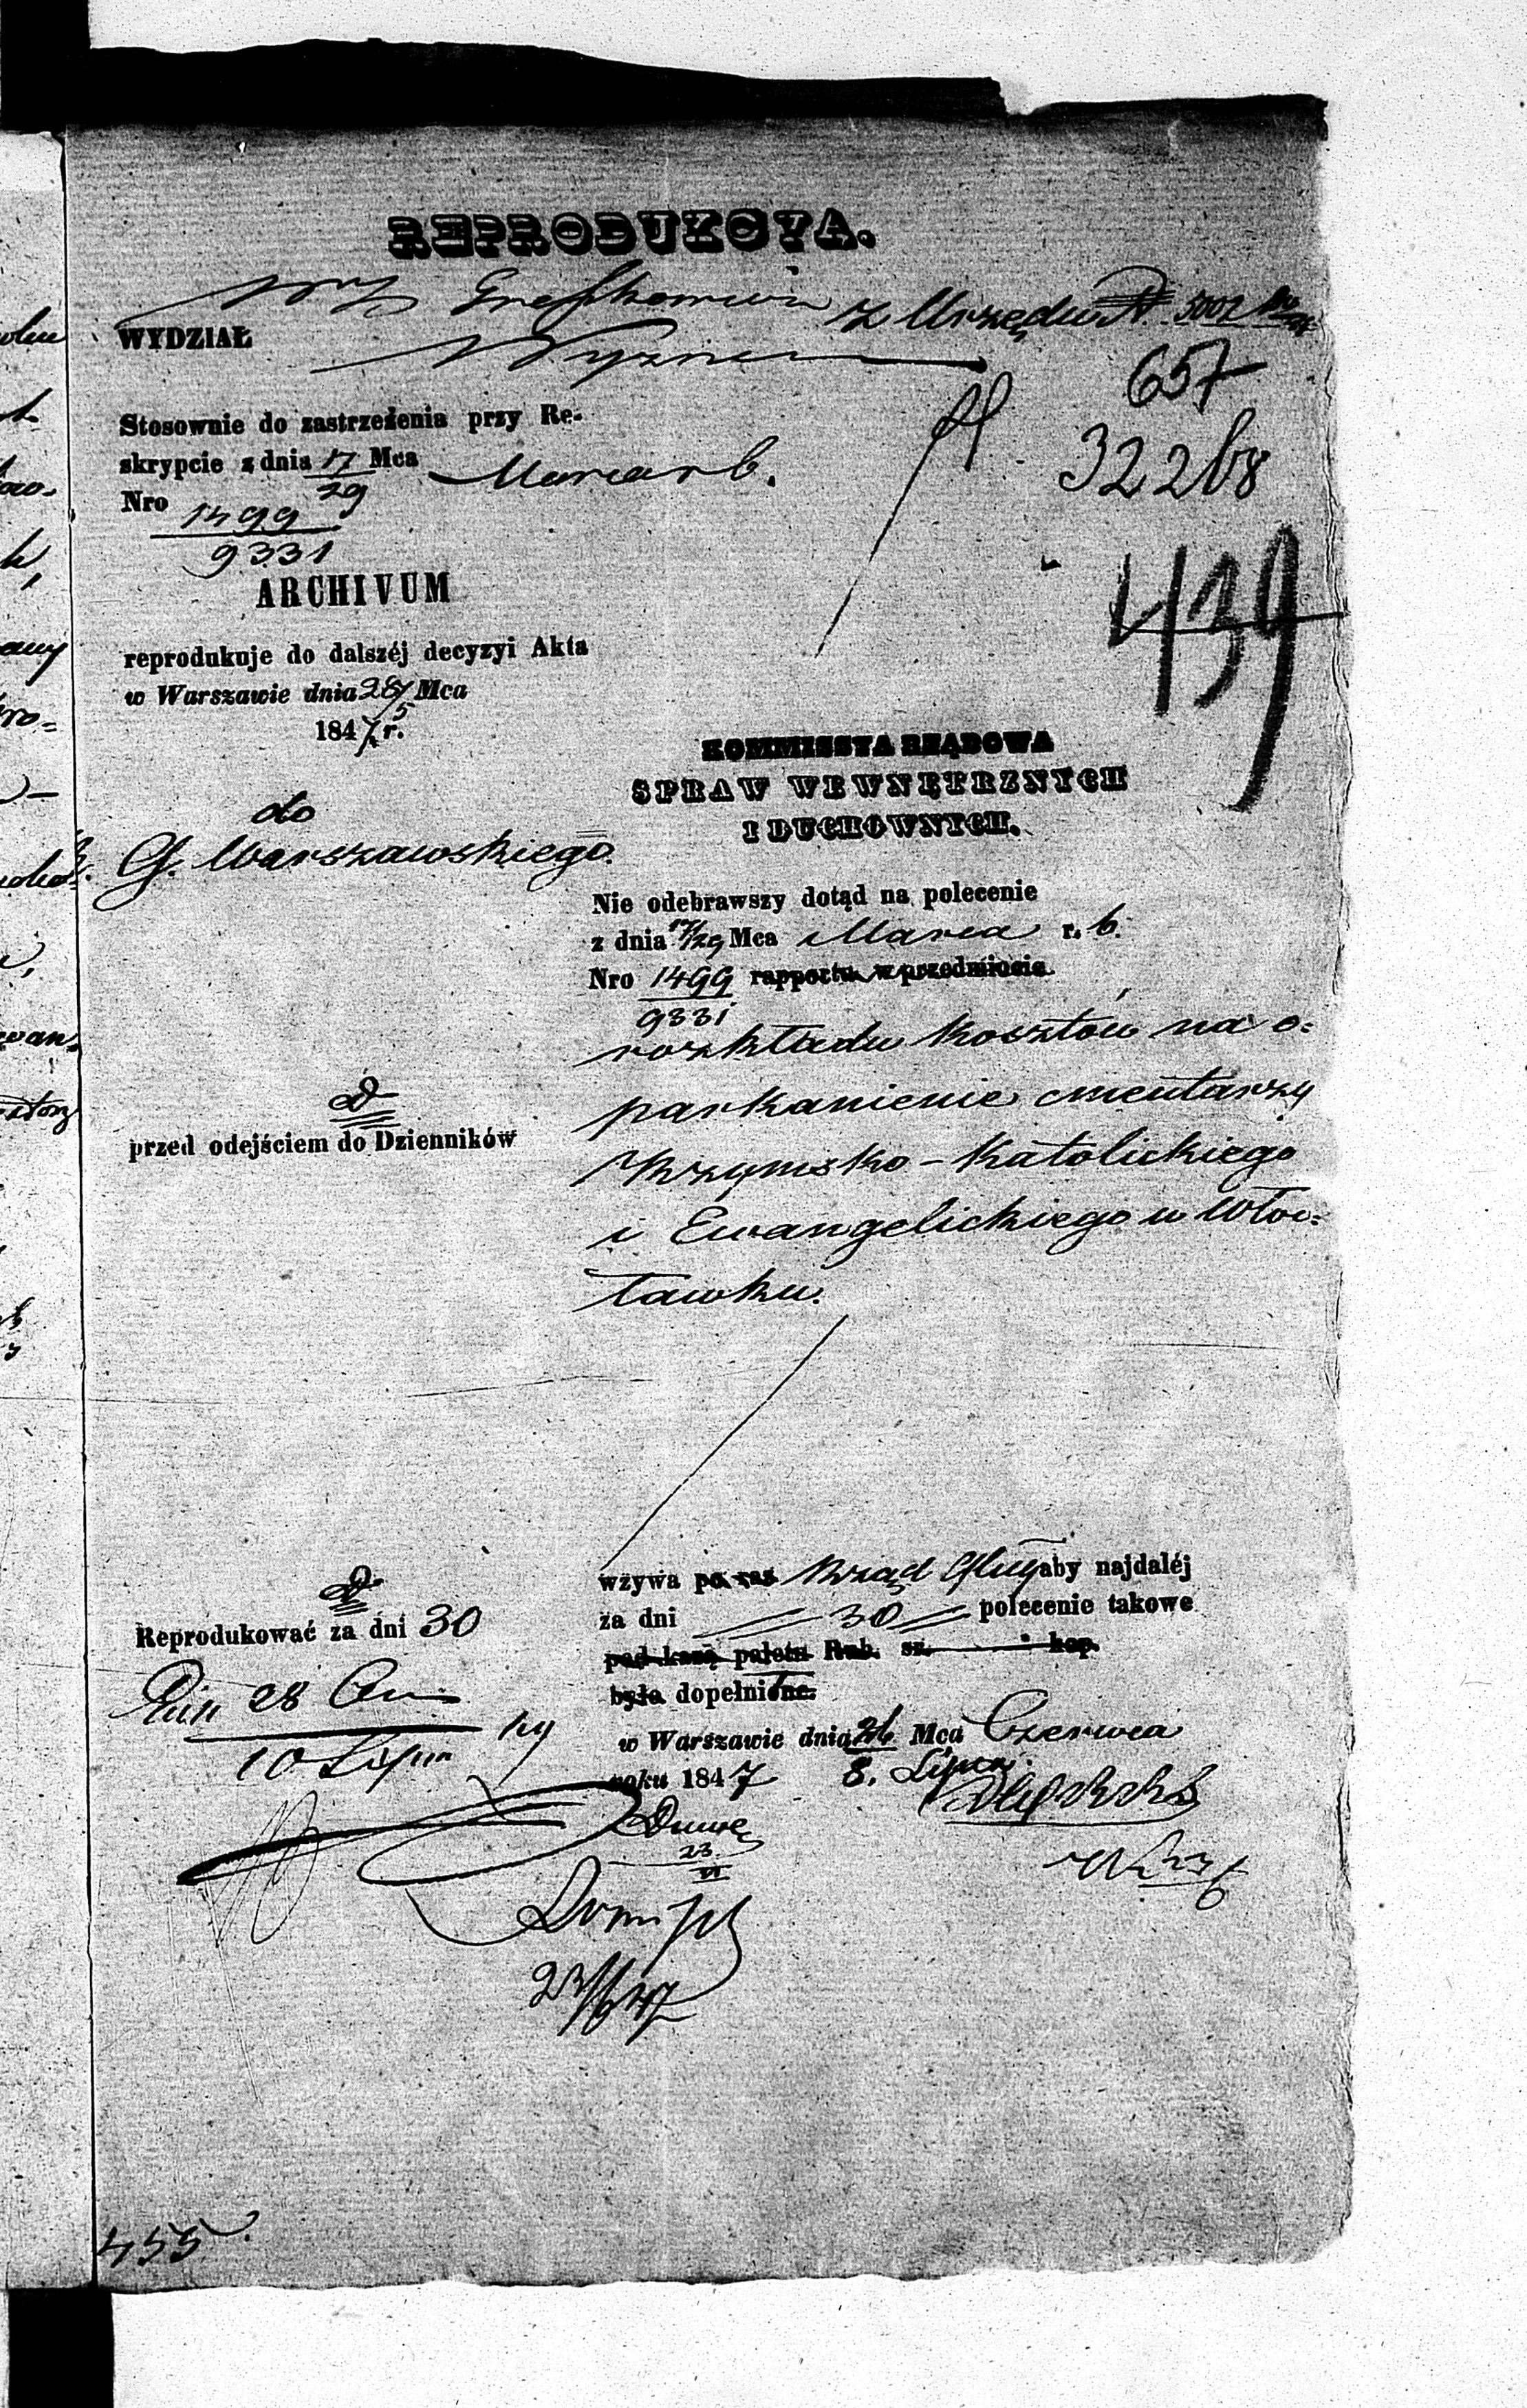 REPRODUKCYA.
z Urzędu
WYDZIAŁ Wyznań
657
32268
439
Stosownie do zastrzeżenia przy Re-
skrypcie z dnia 17/29 Mca Marca r b.
Nro 1499/9331
ARCHIVUM
reprodukuje do dalszéj decyzyi Akta
w Warszawie dnia 28/5 Mca
1847 r.
do
G. Warszawskiego.
przed odejściem do Dzienników
Reprodukować za dni 30
28
10 Lipca
KOMMISSYA RZĄDOWA
SPRAW WEWNĘTRZNYCH
I DUCHOWNYCH.
Nie odebrawszy dotąd na polecenie
z dnia 17/29 Mca Marca r. b.
Nro 1499/9331 rapportu w przedmiocie
rozkładu kosztów na o=
parkanienie cmentarzy
Rzymsko-Katolickiego
i Ewangelickiego w Wło=
ławku.
wzywa po raz Rząd Gług aby najdaléj
za dni 30 polecenie takowe
pod karą pałetu Rub. sr. kop.
było dopełnione.
w Warszawie dnia 26 Mca Czerwca
roku 1847 8. Lipca
23
VI
23/6 47
455